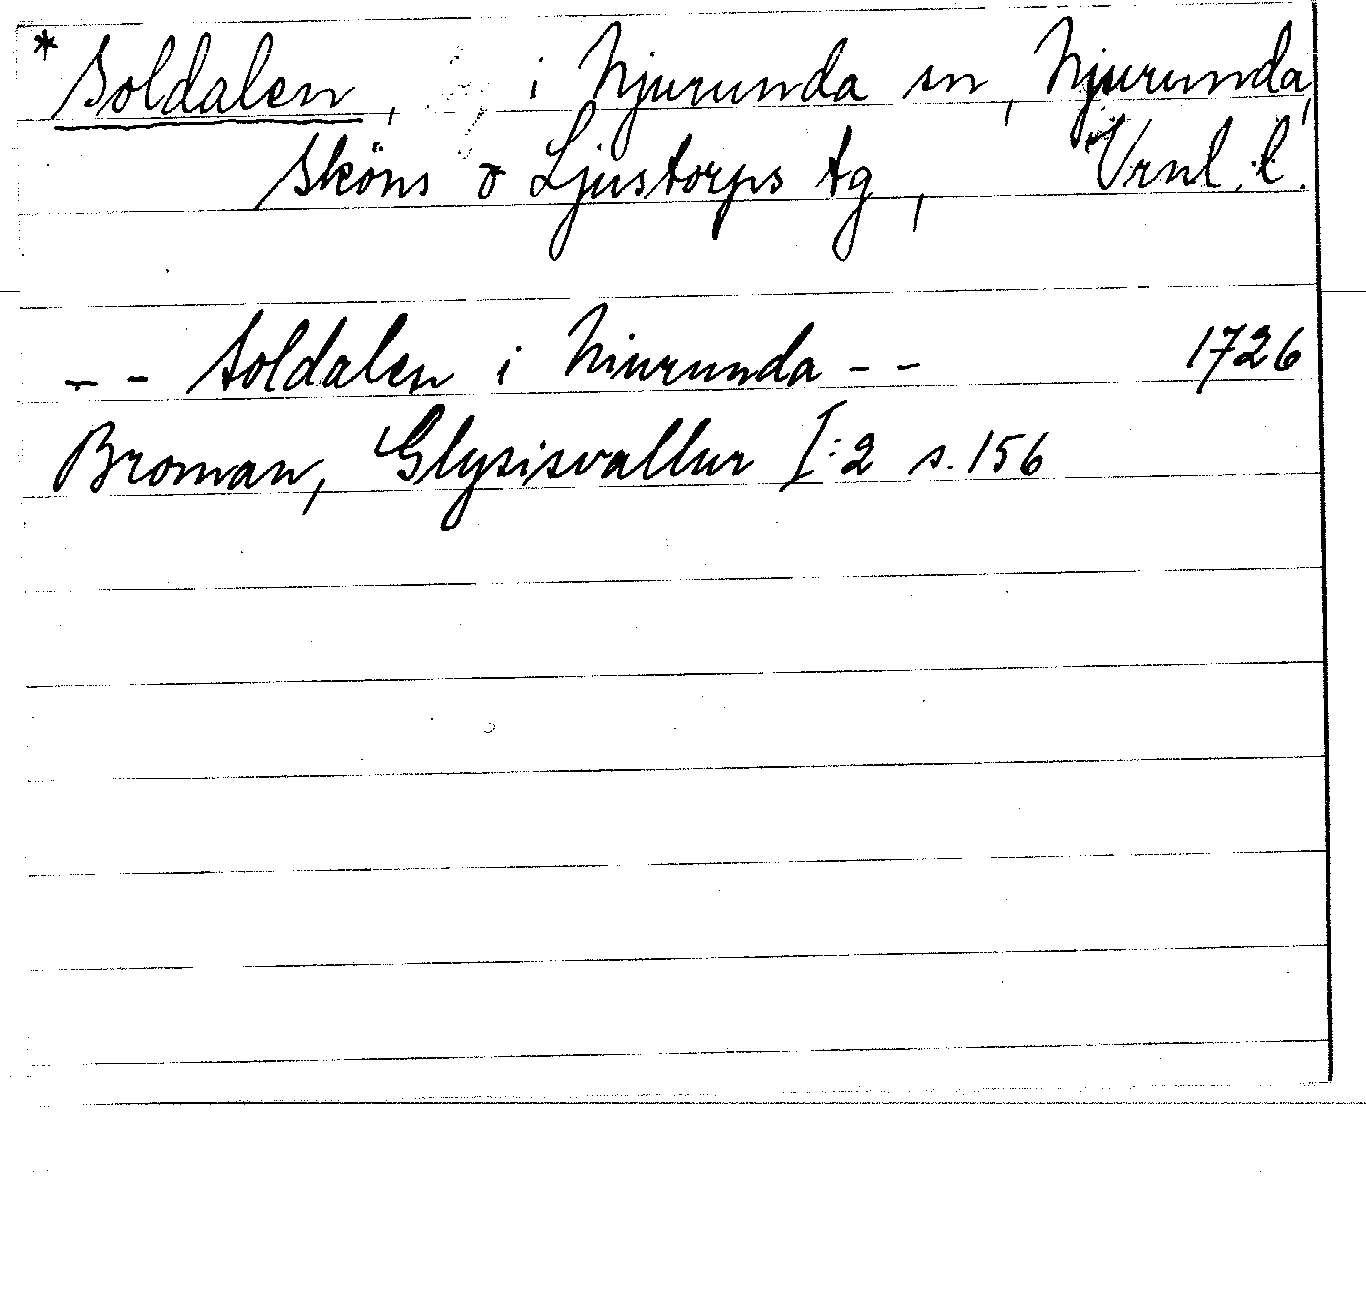 * Soldalen, i Njurunda sn, Njurunda,
Sköns o Ljustorps tg, Vrnl. l.
-- Soldalen i Niurunda -- 1726
Broman, Glysisvallur I:2 s. 156